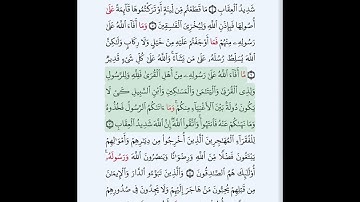 شَدِيدُ ٱلْعِقَابِ ۝ مَا قَطَعْتُم مِّن لِّينَةٍ أَوْ تَرَكْتُمُوهَا قَآئِمَةً عَلَىٰٓ
أُصُولِهَا فَبِإِذْنِ ٱللَّهِ وَلِيُخْزِىَ ٱلْفَٰسِقِينَ ۝ وَمَآ أَفَآءَ ٱللَّهُ عَلَىٰ
رَسُولِهِۦ مِنْهُمْ فَمَآ أَوْجَفْتُمْ عَلَيْهِ مِنْ خَيْلٍ وَلَا رِكَابٍ وَلَٰكِنَّ
ٱللَّهَ يُسَلِّطُ رُسُلَهُۥ عَلَىٰ مَن يَشَآءُ ۚ وَٱللَّهُ عَلَىٰ كُلِّ شَىْءٍ قَدِيرٌ
۝ مَّآ أَفَآءَ ٱللَّهُ عَلَىٰ رَسُولِهِۦ مِنْ أَهْلِ ٱلْقُرَىٰ فَلِلَّهِ وَلِلرَّسُولِ
وَلِذِى ٱلْقُرْبَىٰ وَٱلْيَتَٰمَىٰ وَٱلْمَسَٰكِينِ وَٱبْنِ ٱلسَّبِيلِ كَىْ لَا
يَكُونَ دُولَةًۢ بَيْنَ ٱلْأَغْنِيَآءِ مِنكُمْ ۚ وَمَآ ءَاتَىٰكُمُ ٱلرَّسُولُ فَخُذُوهُ
وَمَا نَهَىٰكُمْ عَنْهُ فَٱنتَهُوا۟ ۚ وَٱتَّقُوا۟ ٱللَّهَ ۖ إِنَّ ٱللَّهَ شَدِيدُ ٱلْعِقَابِ ۝
لِلْفُقَرَآءِ ٱلْمُهَٰجِرِينَ ٱلَّذِينَ أُخْرِجُوا۟ مِن دِيَٰرِهِمْ وَأَمْوَٰلِهِمْ
يَبْتَغُونَ فَضْلًا مِّنَ ٱللَّهِ وَرِضْوَٰنًا وَيَنصُرُونَ ٱللَّهَ وَرَسُولَهُۥٓ ۚ
أُو۟لَٰٓئِكَ هُمُ ٱلصَّٰدِقُونَ ۝ وَٱلَّذِينَ تَبَوَّءُو ٱلدَّارَ وَٱلْإِيمَٰنَ
مِن قَبْلِهِمْ يُحِبُّونَ مَنْ هَاجَرَ إِلَيْهِمْ وَلَا يَجِدُونَ فِى صُدُورِهِمْ